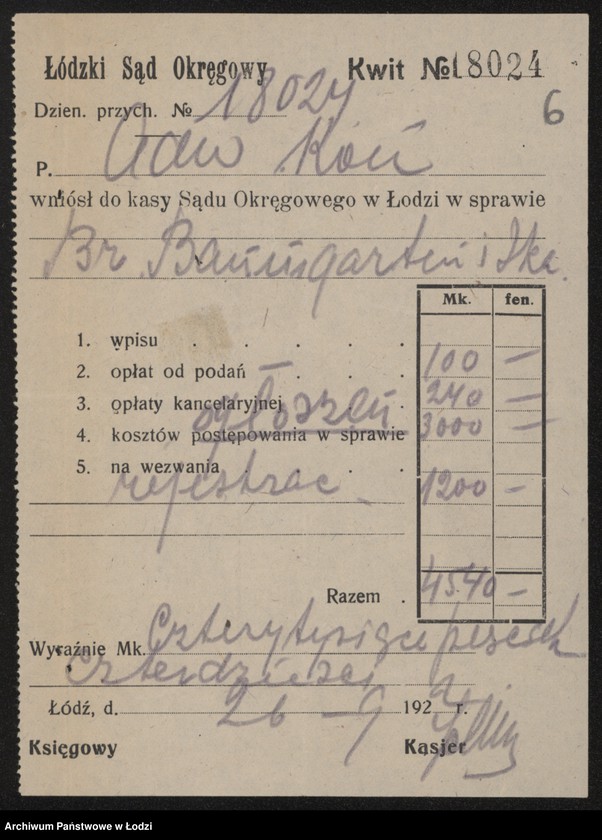 Łódzki Sąd Okręgowy Kwit № 18024
6
Dzien. przych. № 18024
P. Adw Koń
wniósł do kasy Sądu Okręgowego w Łodzi w sprawie
Br. Baumgarten i Ska.
Mk. fen.
1. wpisu
2. opłat od podań — 100 —
3. opłaty kancelaryjnej 240 —
ogłoszeń
4. kosztów postępowania w sprawie 3000 —
5. na wezwania
rejestrac 1200 —
Razem . 4540 —
Wyraźnie Mk. Czterytysiące pięćset
czterdzieści
Łódź, d. 26 - 9 192 2 r.
Księgowy Kasjer
Archiwum Państwowe w Łodzi